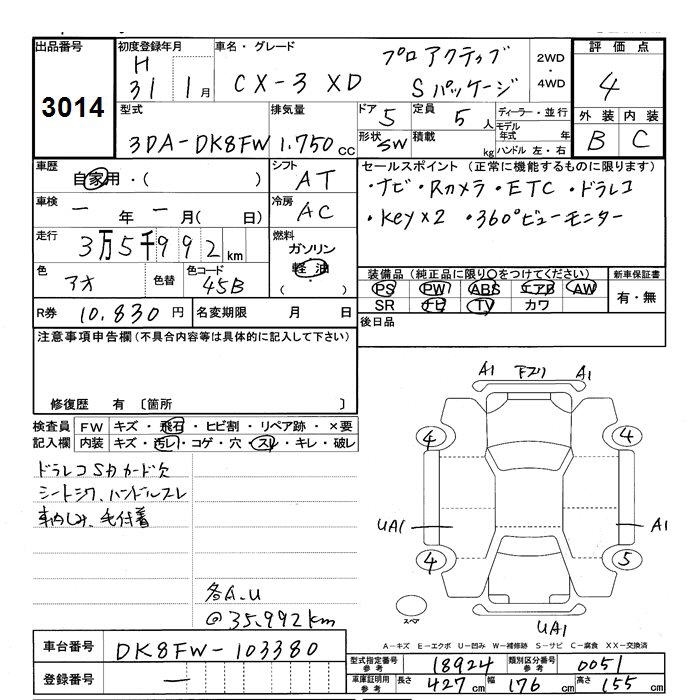 出品番号
3014
初度登録年月
H
31 1月
車名・グレード
CX-3 XD
プロアクティブ
Sパッケージ
2WD
・
4WD
評価点
4
外装 内装
B C
型式
3DA-DK8FW
排気量
1.750 CC
ドア 5
定員 5人
ディーラー・並行
形状 SW
積載 kg
モデル年式 年
ハンドル 左・右
車歴
自家用・( )
シフト
AT
車検
一年一月( 日)
冷房
AC
走行
3万5千992km
燃料
ガソリン
軽油
( ・ )
色
アオ
色替
色コード
45B
R券 10.830円
名変期限 月 日
セールスポイント(正常に機能するものに限ります)
・ナビ・Rカメラ・ETC・ドラレコ
・Key×2 ・360°ビューモニター
装備品(純正品に限り〇をつけてください)
新車保証書
PS PW ABS エアB AW
有・無
SR ナビ TV カワ
後日品
注意事項申告欄(不具合内容等は具体的に記入して下さい)
修復歴 有 〔箇所 〕
検査員記入欄
FW キズ・飛石・ヒビ割・リペア跡・×要
内装 キズ・汚レ・コゲ・穴・スレ・キレ・破レ
ドラレコSDカード欠
シートシワ、ハンドルスレ
車内しみ、毛付着
各A.U
@35.992km
A1 A1
4 4
UA1 A1
4 5
スペア
UA1
A-キズ E-エクボ U-凹み W-補修跡 S-サビ C-腐食 XX-交換済
車台番号 DK8FW-103380
登録番号 一
型式指定番号 参考 18924
類別区分番号 参考 0051
車庫証明用 参考 長さ 427cm 幅 176cm 高さ 155cm